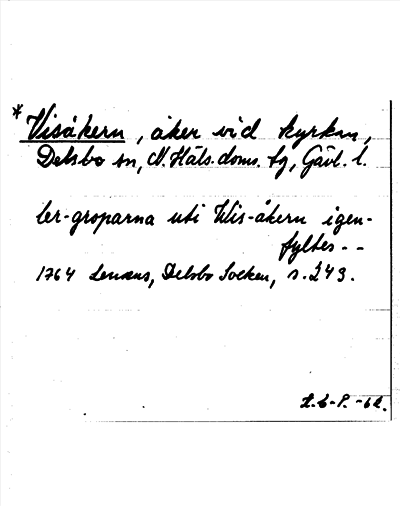 * Visåkern, åker vid kyrkan,
Delsbo sn, N. Häls. doms. tg, Gävl. l.
ler-groparna uti Wis-åkern igen-
fyltes - -
1764 Lenæus, Delsbo Socken, s. 249.
L. L-P. -62.